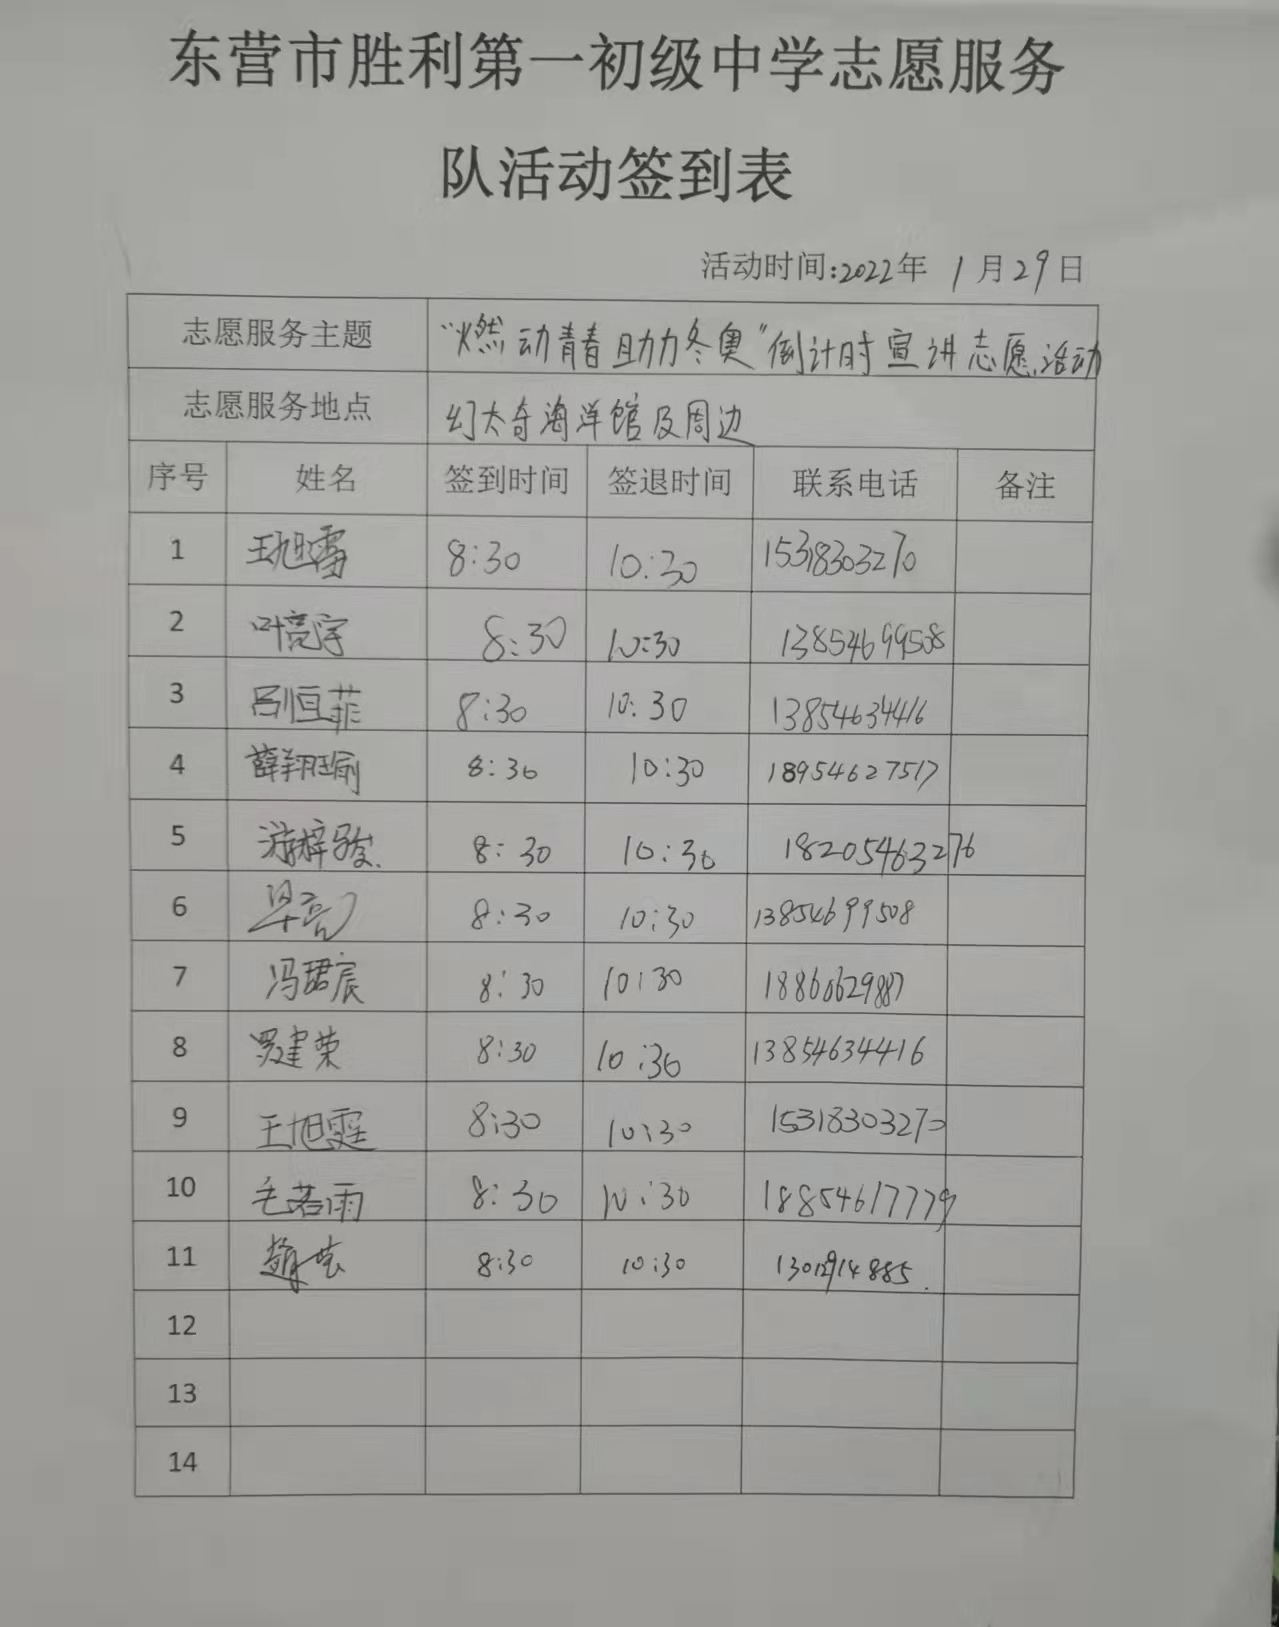 东营市胜利第一初级中学志愿服务
队活动签到表
活动时间:2022年 1月29日
志愿服务主题 “燃动青春助力冬奥”倒计时宣讲志愿活动
志愿服务地点 幻太奇海洋馆及周边
序号 姓名 签到时间 签退时间 联系电话 备注
1 王旭霏 8:30 10:30 15318303270
2 叶亮宇 8:30 10:30 13854699508
3 吕恒菲 8:30 10:30 13854634416
4 薛翔瑜 8:30 10:30 18954627517
5 游梓骏 8:30 10:30 18205463276
6 8:30 10:30 13854699508
7 冯珺宸 8:30 10:30 18860629887
8 罗建荣 8:30 10:30 13854634416
9 王旭霆 8:30 10:30 15318303270
10 毛若雨 8:30 10:30 18854617779
11 8:30 10:30
12
13
14